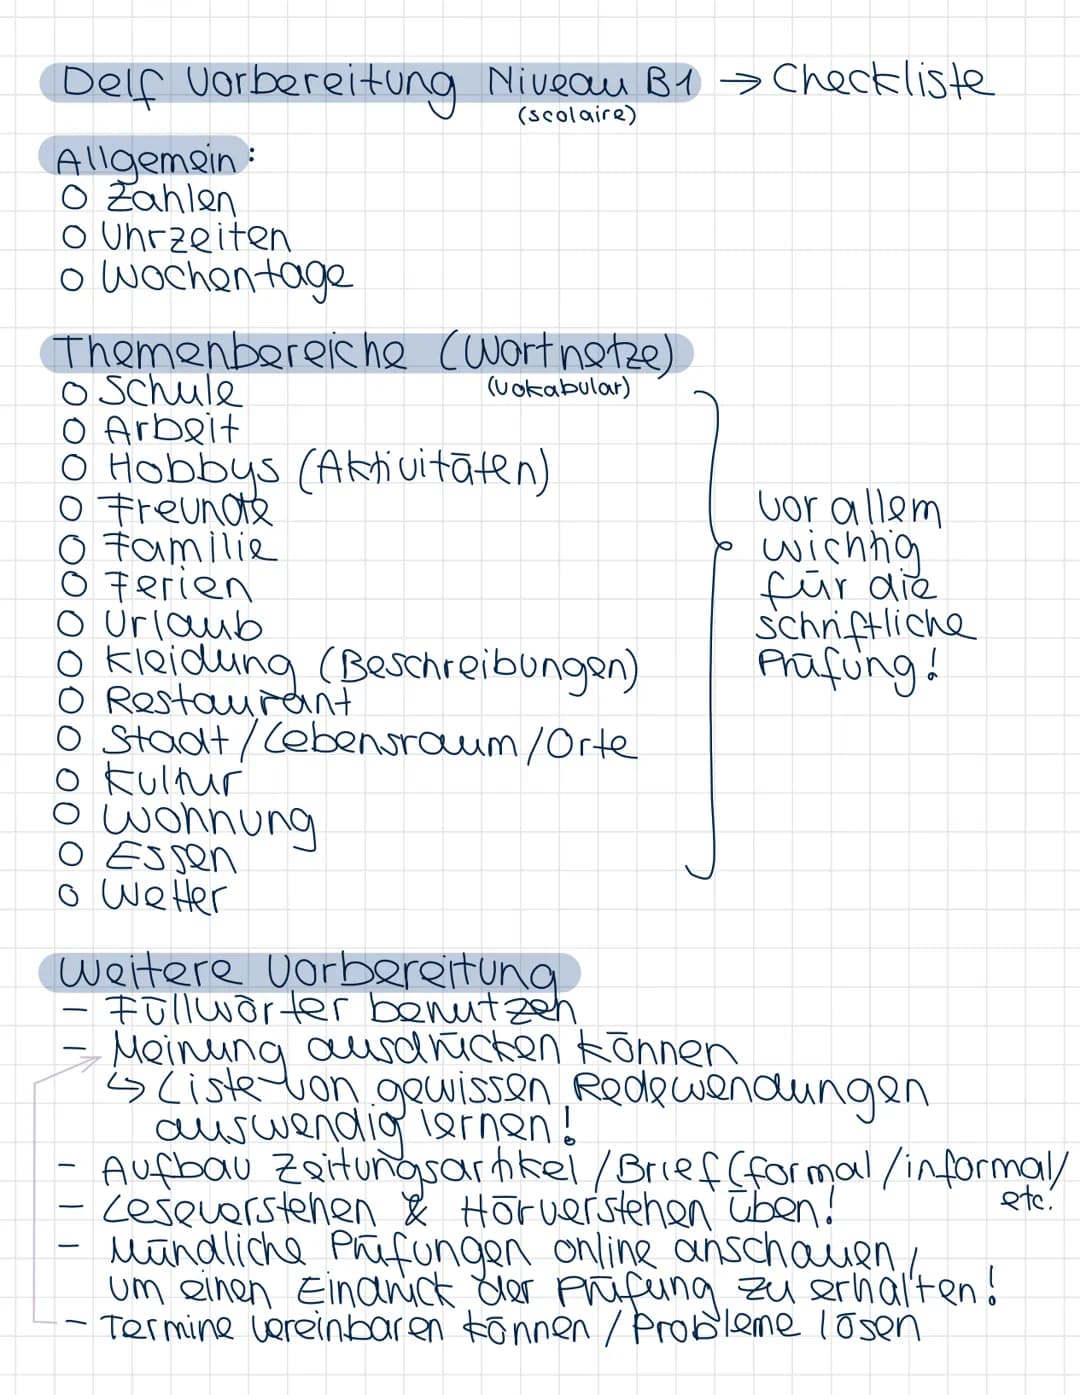 Delf Vorbereitung Niveau B1 → Checkliste
(scolaire)
Allgemein:
o Zahlen
o Uhrzeiten
o Wochentage
Themenbereiche (Wortnetze)
(Vokabular)
o Schule
o Arbeit
o Hobbys (Aktivitäten)
o Freunde
o Familie
o Ferien
o Urlaub
o Kleidung (Beschreibungen)
o Restaurant
o Stadt/Lebensraum/Orte
o Kultur
o Wohnung
o Essen
o Wetter
vor allem
wichtig
für die
schriftliche
Prüfung!
Weitere Vorbereitung
- Füllwörter benutzen
- Meinung ausdrücken können
↳ Liste von gewissen Redewendungen
auswendig lernen!
- Aufbau Zeitungsartikel/Brief (formal/informal/
etc.
- Leseverstehen & Hörverstehen üben!
- Mündliche Prüfungen online anschauen,
um einen Eindruck der Prüfung zu erhalten!
- Termine vereinbaren können / Probleme lösen